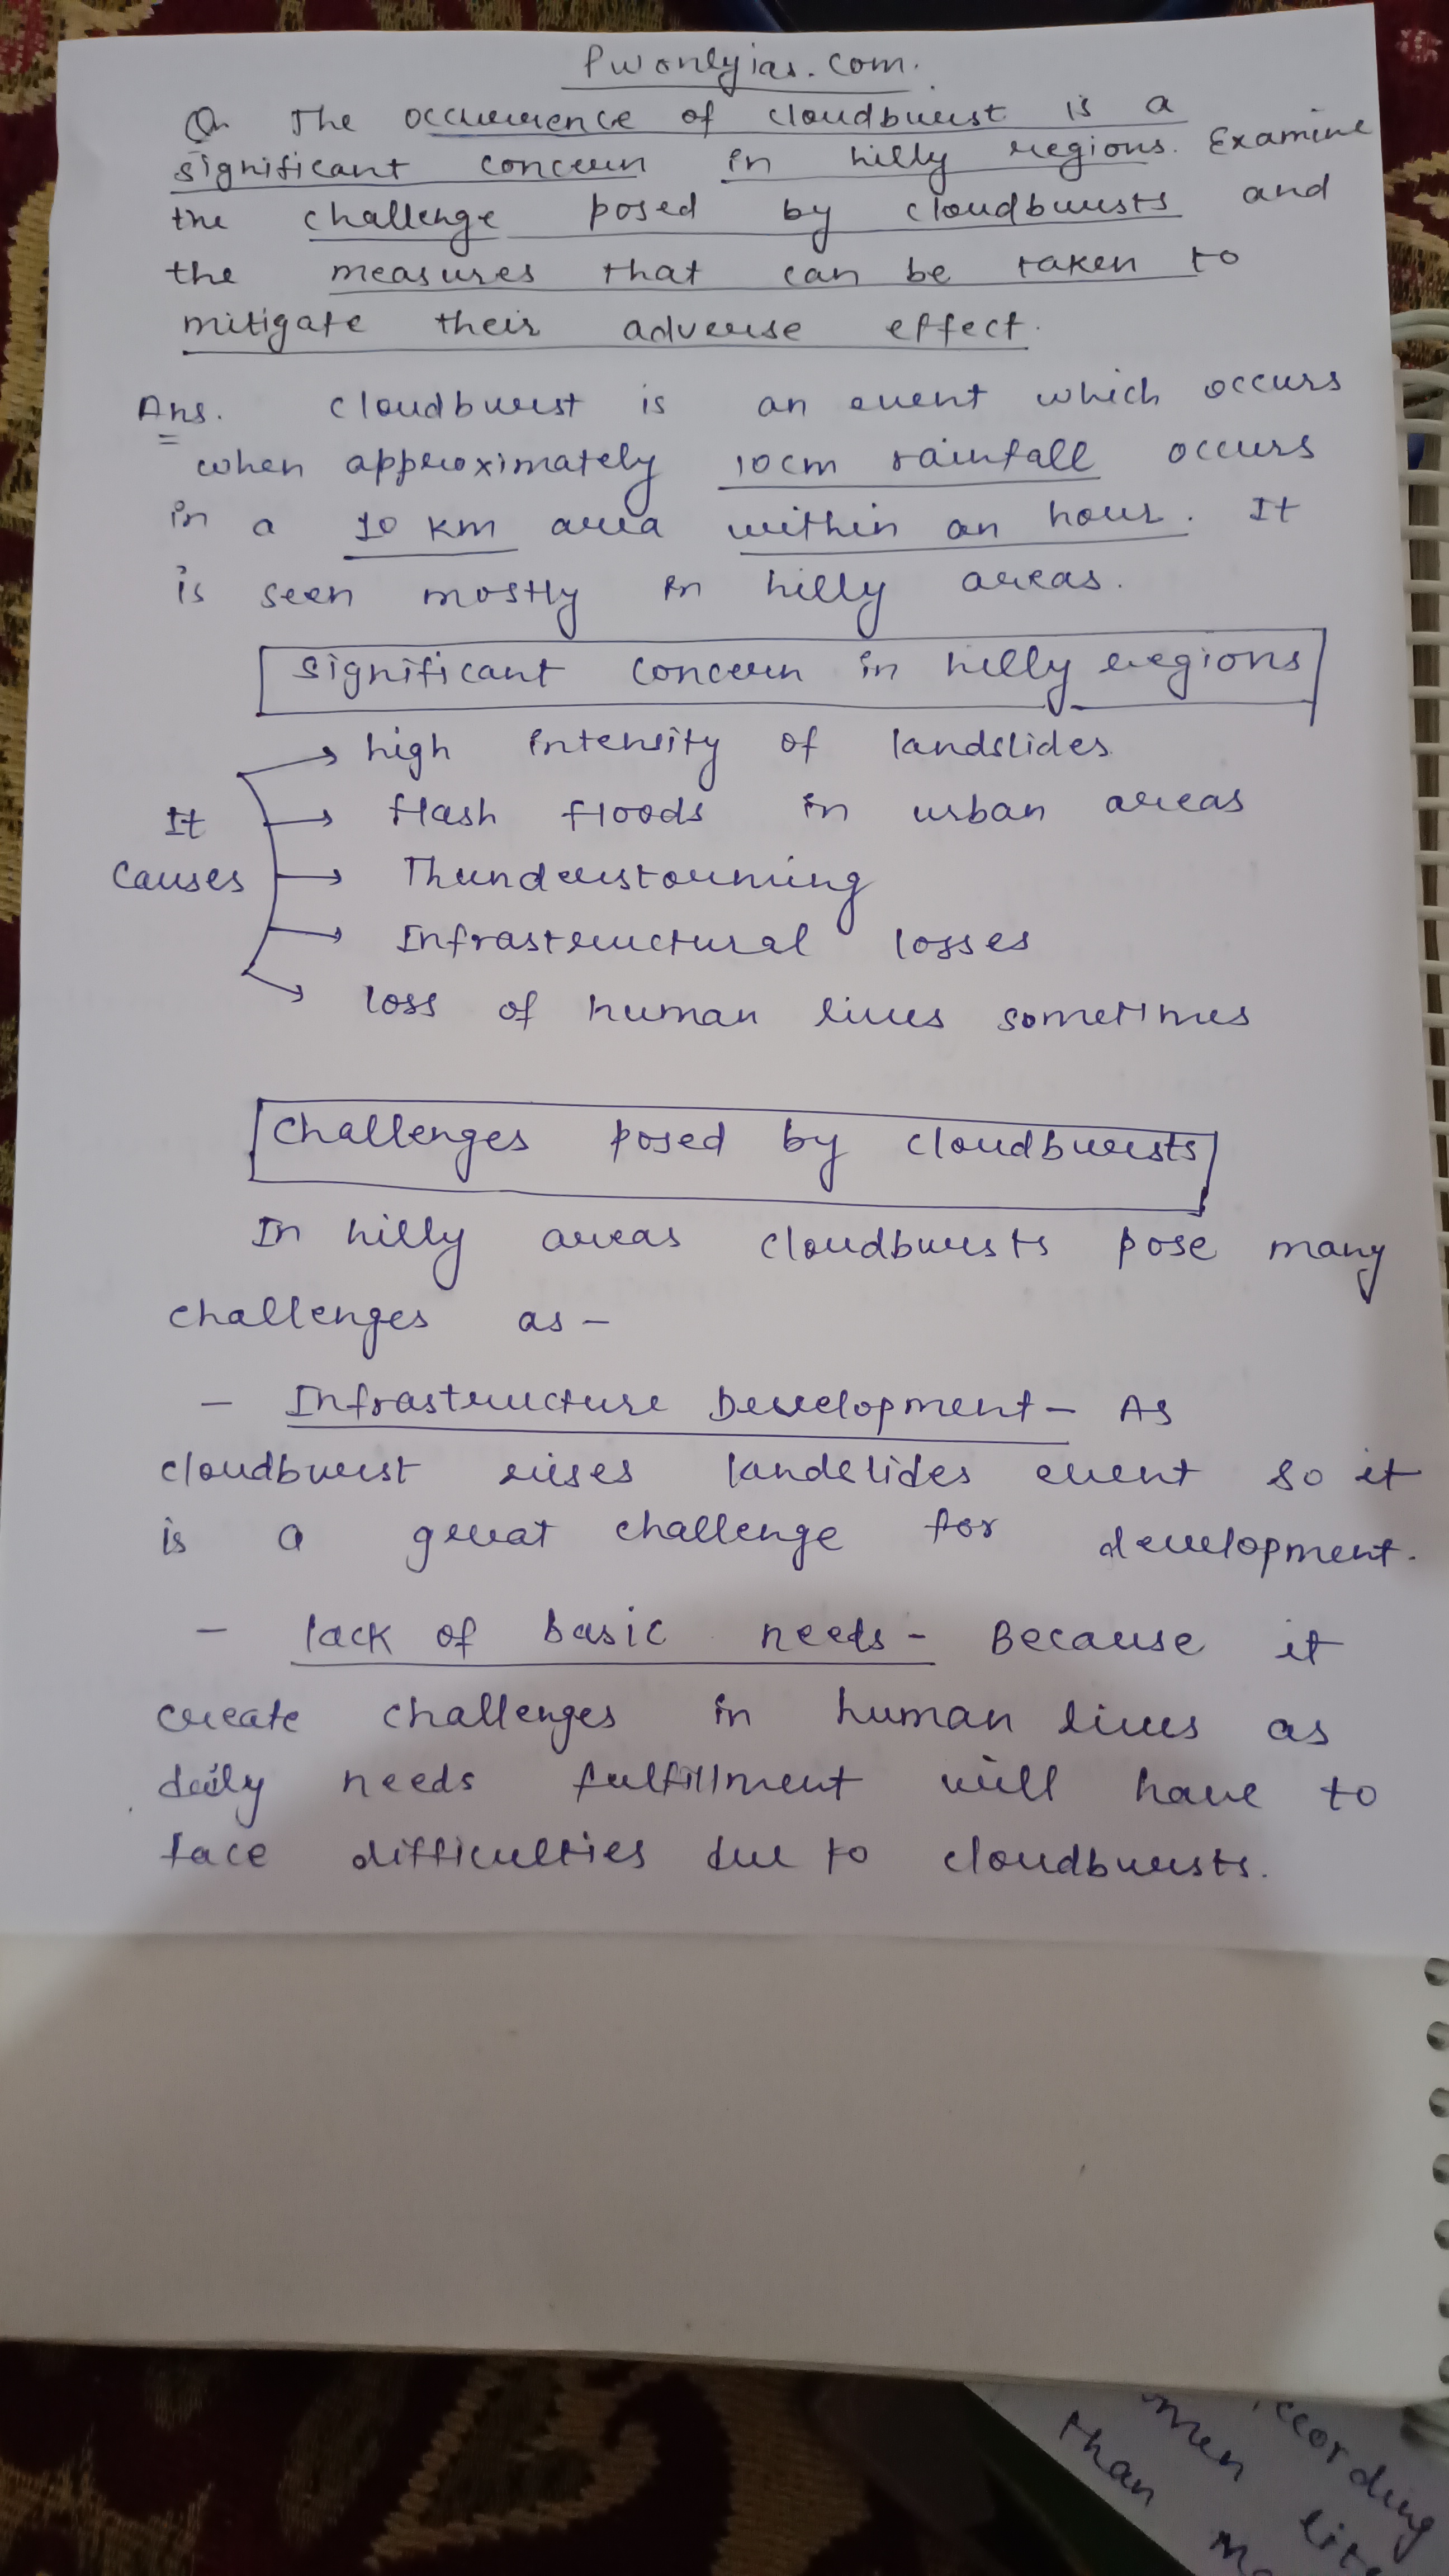 Pwonlyias.com.
Q. The occurrence of cloudburst is a
significant concern in hilly regions. Examine
the challenge posed by cloudbursts and
the measures that can be taken to
mitigate their adverse effect.
Ans. Cloudburst is an event which occurs
when approximately 10cm rainfall occurs
in a 10 km area within an hour. It
is seen mostly in hilly areas.
Significant concern in hilly regions
→ high intensity of landslides
It → flash floods in urban areas
causes → Thunderstorming
→ Infrastructural losses
→ loss of human lives sometimes
Challenges posed by cloudbursts
In hilly areas cloudbursts pose many
challenges as -
- Infrastructure Development - As
cloudburst rises landslides event so it
is a great challenge for development.
- lack of basic needs - Because it
create challenges in human lives as
daily needs fulfillment will have to
face difficulties due to cloudbursts.
ccording
men
than